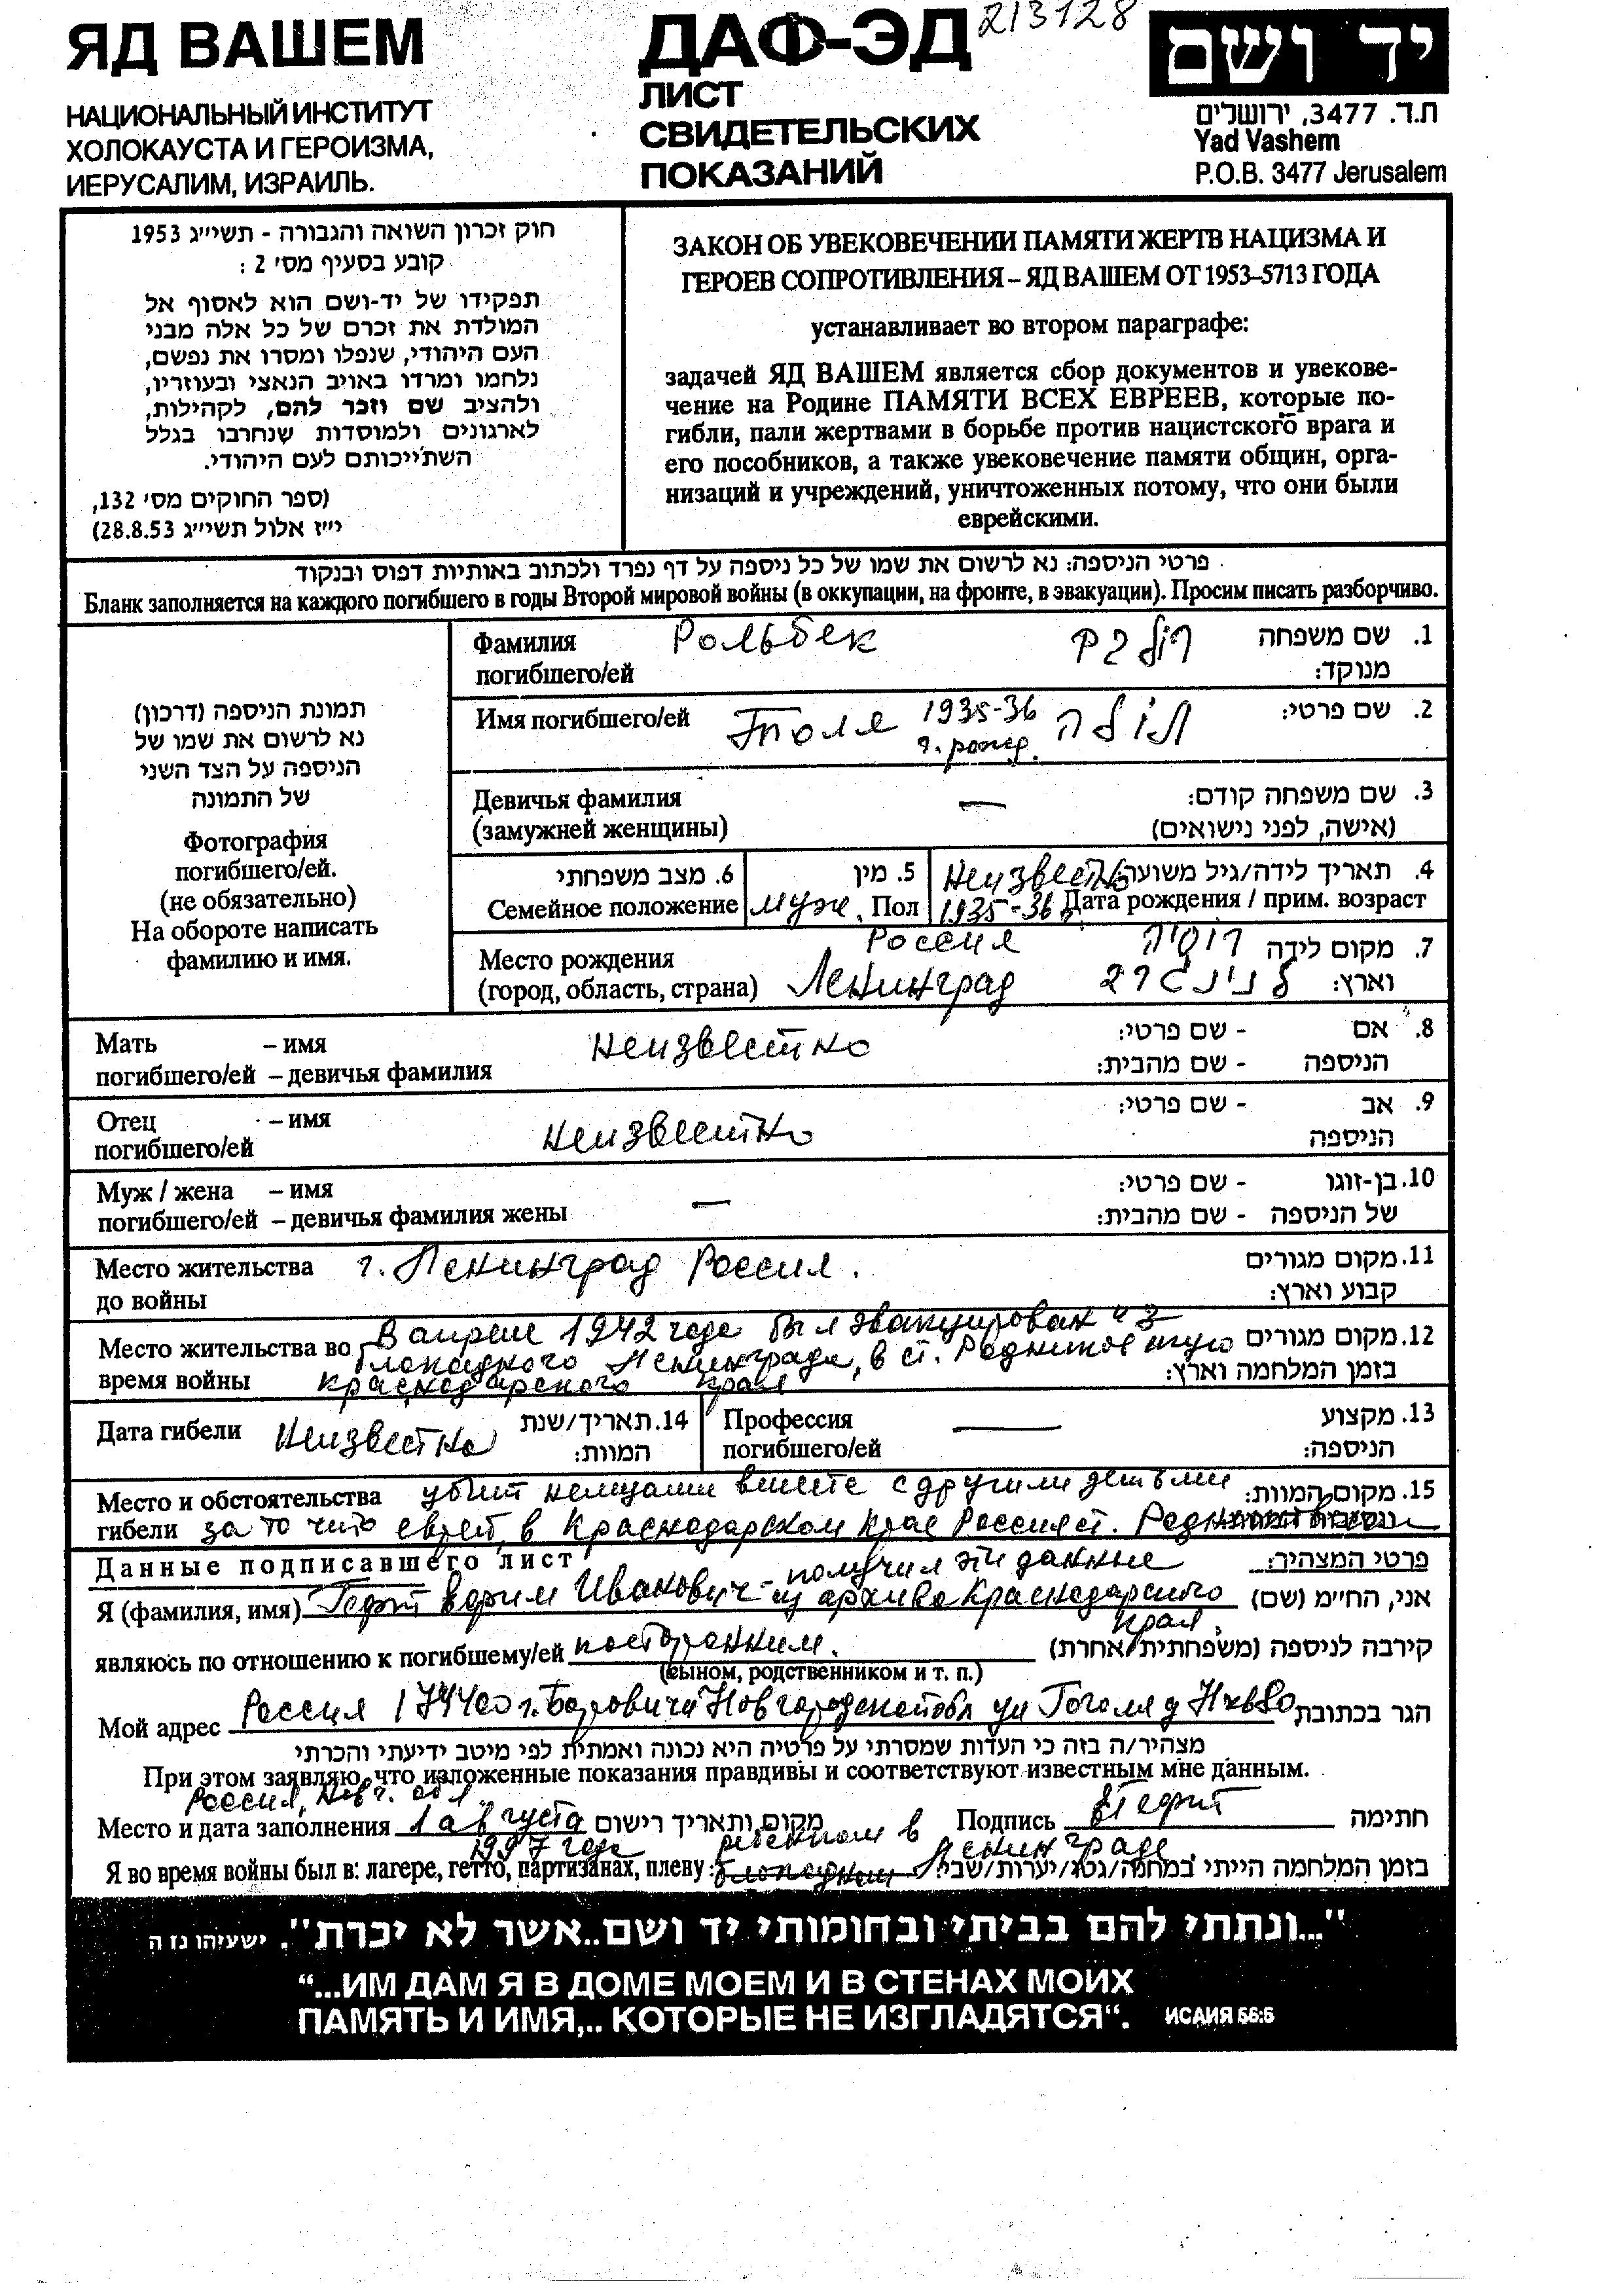 ЯД ВАШЕМ
НАЦИОНАЛЬНЫЙ ИНСТИТУТ
ХОЛОКАУСТА И ГЕРОИЗМА,
ИЕРУСАЛИМ, ИЗРАИЛЬ.
ДАФ-ЭД
213128
ЛИСТ
СВИДЕТЕЛЬСКИХ
ПОКАЗАНИЙ
יד ושם
ת.ד. 3477, ירושלים
Yad Vashem
P.O.B. 3477 Jerusalem
חוק זכרון השואה והגבורה - תשי״ג 1953
קובע בסעיף מס׳ 2 :
תפקידו של יד-ושם הוא לאסוף אל
המולדת את זכרם של כל אלה מבני
העם היהודי, שנפלו ומסרו את נפשם,
נלחמו ומרדו באויב הנאצי ובעוזריו,
ולהציב שם וזכר להם, לקהילות,
לארגונים ולמוסדות שנחרבו בגלל
השתייכותם לעם היהודי.
(ספר החוקים מס׳ 132,
י״ז אלול תשי״ג 28.8.53)
ЗАКОН ОБ УВЕКОВЕЧЕНИИ ПАМЯТИ ЖЕРТВ НАЦИЗМА И
ГЕРОЕВ СОПРОТИВЛЕНИЯ – ЯД ВАШЕМ ОТ 1953–5713 ГОДА
устанавливает во втором параграфе:
задачей ЯД ВАШЕМ является сбор документов и увекове-
чение на Родине ПАМЯТИ ВСЕХ ЕВРЕЕВ, которые по-
гибли, пали жертвами в борьбе против нацистского врага и
его пособников, а также увековечение памяти общин, орга-
низаций и учреждений, уничтоженных потому, что они были
еврейскими.
פרטי הניספה: נא לרשום את שמו של כל ניספה על דף נפרד ולכתוב באותיות דפוס ובנקוד
Бланк заполняется на каждого погибшего в годы Второй мировой войны (в оккупации, на фронте, в эвакуации). Просим писать разборчиво.
תמונת הניספה (דרכון)
נא לרשום את שמו של
הניספה על הצד השני
של התמונה
Фотография
погибшего/ей.
(не обязательно)
На обороте написать
фамилию и имя.
Фамилия Рольбек רולבק 1. שם משפחה
погибшего/ей מנוקד:
Имя погибшего/ей Толя 1935-36 תולה 2. שם פרטי:
г. рожд.
Девичья фамилия — 3. שם משפחה קודם:
(замужней женщины) (אישה, לפני נישואים)
6. מצב משפחתי 5. מין Неизвестно 4. תאריך לידה/גיל משוער
Семейное положение муж. Пол 1935-36 Дата рождения / прим. возраст
Россия רוסיה 7. מקום לידה
Место рождения
(город, область, страна) Ленинград לנינגרד וארץ:
Мать – имя неизвестно 8. אם - שם פרטי:
погибшего/ей – девичья фамилия הניספה - שם מהבית:
Отец – имя неизвестно 9. אב - שם פרטי:
погибшего/ей הניספה
Муж / жена – имя — 10. בן-זוגו - שם פרטי:
погибшего/ей – девичья фамилия жены של הניספה - שם מהבית:
Место жительства г. Ленинград Россия. 11. מקום מגורים
до войны קבוע וארץ:
Место жительства во В апреле 1942 года был эвакуирован из 12. מקום מגורים
время войны блокадного Ленинграда, в ст. Родниковскую בזמן המלחמה וארץ:
Краснодарского края
Дата гибели Неизвестно 14. תאריך/שנת המוות:
Профессия — 13. מקצוע
погибшего/ей הניספה:
Место и обстоятельства убит немцами вместе с другими детьми 15. מקום המוות:
гибели за то что еврей, в Краснодарском крае Россия ст.
Данные подписавшего лист פרטי המצהיר:
получил эти данные
Я (фамилия, имя) Вадим Иванович - из архива Краснодарского אני, החי״מ (שם)
края.
являюсь по отношению к погибшему/ей посторонним. קירבה לניספה (משפחתית/אחרת)
(сыном, родственником и т. п.)
Мой адрес Россия 174400 г. Боровичи Новгородской обл ул Гоголя д הגר בכתובת
מצהיר/ה בזה כי העדות שמסרתי על פרטיה היא נכונה ואמתית לפי מיטב ידיעתי והכרתי
При этом заявляю, что изложенные показания правдивы и соответствуют известным мне данным.
Россия, Новг. обл.
Место и дата заполнения 1 августа מקום ותאריך רישום Подпись חתימה
1997 года ребенком в Ленинграде.
Я во время войны был в: лагере, гетто, партизанах, плену: блокадном בזמן המלחמה הייתי במחנה/גטו/יערות/שבי:
"...ונתתי להם בביתי ובחומותי יד ושם..אשר לא יכרת". ישעיהו נו ה
“...ИМ ДАМ Я В ДОМЕ МОЕМ И В СТЕНАХ МОИХ
ПАМЯТЬ И ИМЯ,.. КОТОРЫЕ НЕ ИЗГЛАДЯТСЯ“. ИСАИЯ 56:5